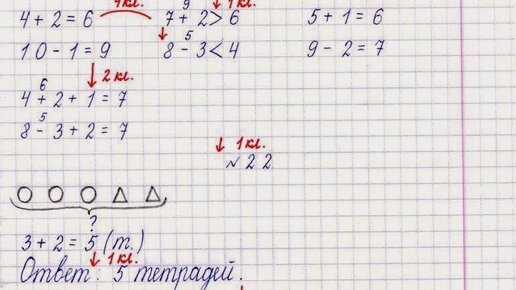 1кл. 1кл.
9
4+2=6 7+2>6 5+1=6
5
10-1=9 8-3<4 9-2=7
2кл.
6
4+2+1=7
5
8-3+2=7
1кл.
№22
?
3+2=5 (т.)
1кл.
Ответ: 5 тетрадей.